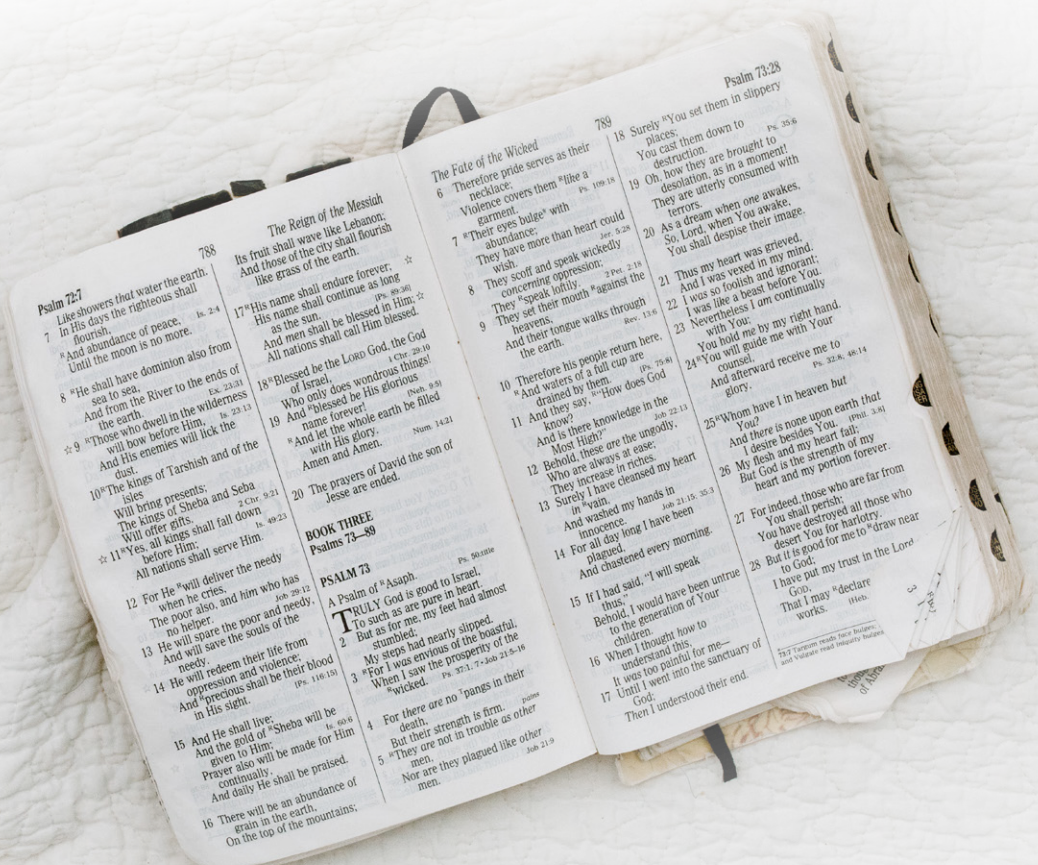 Psalm 72:7
788
The Reign of the Messiah
Like showers that water the earth.
7 In His days the righteous shall
flourish,
Is. 2:4
RAnd abundance of peace,
Until the moon is no more.
8 RHe shall have dominion also from
sea to sea,
And from the River to the ends of
the earth.
Ex. 23:31
☆9 RThose who dwell in the wilderness
will bow before Him,
Is. 23:13
And His enemies will lick the
dust.
10 RThe kings of Tarshish and of the
isles
Will bring presents;
The kings of Sheba and Seba
Will offer gifts.
2 Chr. 9:21
☆11 RYes, all kings shall fall down
before Him;
Is. 49:23
All nations shall serve Him.
12 For He Rwill deliver the needy
when he cries,
The poor also, and him who has
no helper.
Job 29:12
13 He will spare the poor and needy,
And will save the souls of the
needy.
☆14 He will redeem their life from
oppression and violence;
And Rprecious shall be their blood
in His sight.
(Ps. 116:15)
15 And He shall live;
And the gold of RSheba will be
given to Him;
Is. 60:6
Prayer also will be made for Him
continually,
☆ And daily He shall be praised.
16 There will be an abundance of
grain in the earth,
On the top of the mountains;
Its fruit shall wave like Lebanon;
And those of the city shall flourish
like grass of the earth.
17 RHis name shall endure forever; ☆
His name shall continue as long
as the sun.
(Ps. 89:36)
And men shall be blessed in Him; ☆
All nations shall call Him blessed.
18 RBlessed be the LORD God, the God
of Israel,
1 Chr. 29:10
Who only does wondrous things!
19 And Rblessed be His glorious
name forever!
(Neh. 9:5)
RAnd let the whole earth be filled
with His glory.
Num. 14:21
Amen and Amen.
20 The prayers of David the son of
Jesse are ended.
BOOK THREE
Psalms 73—89
PSALM 73
A Psalm of RAsaph.
Ps. 50:title
TRULY God is good to Israel,
To such as are pure in heart.
2 But as for me, my feet had almost
stumbled;
My steps had nearly slipped.
3 RFor I was envious of the boastful,
When I saw the prosperity of the
Rwicked.
Ps. 37:1, 7 · Job 21:5–16
4 For there are no Tpangs in their
death,
pains
But their strength is firm.
5 RThey are not in trouble as other
men,
Nor are they plagued like other
men.
Job 21:9
The Fate of the Wicked
789
Psalm 73:28
6 Therefore pride serves as their
necklace;
Violence covers them Rlike a
garment.
Ps. 109:18
7 RTheir eyes bulge with
abundance;
Jer. 5:28
They have more than heart could
wish.
8 They scoff and speak wickedly
concerning oppression;
They Rspeak loftily.
2 Pet. 2:18
9 They set their mouth Ragainst the
heavens,
And their tongue walks through
the earth.
Rev. 13:6
10 Therefore his people return here,
RAnd waters of a full cup are
drained by them.
(Ps. 75:8)
11 And they say, R"How does God
know?
And is there knowledge in the
Most High?"
Job 22:13
12 Behold, these are the ungodly,
Who are always at ease;
They increase in riches.
13 Surely I have cleansed my heart
in Rvain,
And washed my hands in
innocence.
Job 21:15; 35:3
14 For all day long I have been
plagued,
And chastened every morning.
15 If I had said, "I will speak
thus,"
Behold, I would have been untrue
to the generation of Your
children.
16 When I thought how to
understand this,
It was too painful for me—
17 Until I went into the sanctuary of
God;
Then I understood their end.
18 Surely RYou set them in slippery
places;
Ps. 35:6
You cast them down to
destruction.
19 Oh, how they are brought to
desolation, as in a moment!
They are utterly consumed with
terrors.
20 As a dream when one awakes,
So, Lord, when You awake,
You shall despise their image.
21 Thus my heart was grieved,
And I was vexed in my mind.
22 I was so foolish and ignorant;
I was like a beast before You.
23 Nevertheless I am continually
with You;
You hold me by my right hand.
24 RYou will guide me with Your
counsel,
Ps. 32:8; 48:14
And afterward receive me to
glory.
25 RWhom have I in heaven but
You?
And there is none upon earth that
I desire besides You.
(Phil. 3:8)
26 My flesh and my heart fail;
But God is the strength of my
heart and my portion forever.
27 For indeed, those who are far from
You shall perish;
You have destroyed all those who
desert You for harlotry.
28 But it is good for me to Rdraw near
to God;
I have put my trust in the Lord
GOD,
That I may Rdeclare
works.
(Heb.
73:7 Targum reads face bulges,
and Vulgate read iniquity bulges
of Abra